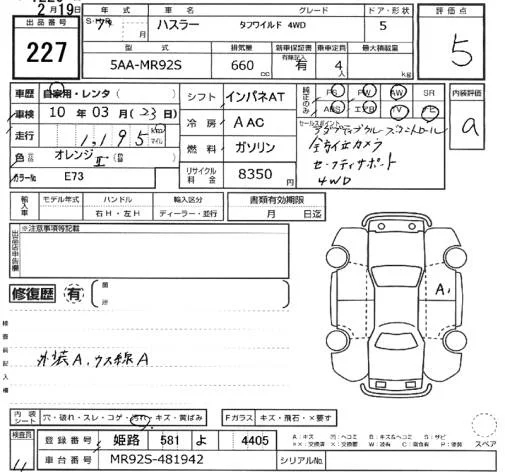 2月19日
出品番号
227
年式 車名 グレード ドア・形状
7 月 ハスラー タフワイルド 4WD 5
型式 排気量 新車保証書 乗車定員 最大積載量
5AA-MR92S 660cc 有 4人 kg
評価点
5
車歴 自家用・レンタ
車検 10年03月(23日)
走行 1,195 km マイル
色 オレンジⅡ
カラーNo E73
シフト インパネAT
冷房 AAC
燃料 ガソリン
リサイクル料金 8350円
純正のみ PS PW AW SR
ABS エアB TV ナビ
セールスポイント
アダプティブクルーズコントロール
全方位カメラ
セーフティサポート
4WD
内装評価
a
輸入車 モデル年式 ハンドル 輸入区分
右H・左H ディーラー・並行
書類有効期限
月 日迄
出品店申告欄 ※注意事項等記載
修復歴 有 箇所
A1
検査員記入欄
外装A,ウス線A
内装シート 穴・破れ・スレ・コゲ・汚れ・キズ・黄ばみ
Fガラス キズ・飛石・×要す
検査員
登録番号 姫路 581 よ 4405
車台番号 MR92S-481942
シリアルNo.
A:キズ U:ヘコミ B:キズ&ヘコミ S:サビ
スペア